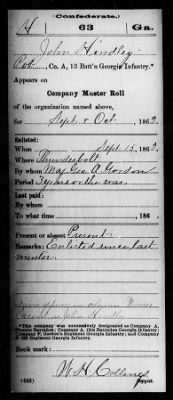 (Confederate.)
H 63 Ga.
John Hindley
Pvt, Co. A, 13 Batt'n Georgia Infantry.*
Appears on
Company Muster Roll
of the organization named above,
for Sept & Oct, 1862.
Enlisted:
When Sept 15, 1862.
Where Thunderbolt
By whom Maj Geo A Gordon
Period 3 years or the war
Last paid:
By whom
To what time 186 .
Present or absent Present
Remarks: Enlisted since last
muster.
*This company was successively designated as Company A,
Phoenix Battalion; Company A, 13th Battalion Georgia Infantry;
Company F, Gordon's Regiment Georgia Infantry; and Company
63d Regiment Georgia Infantry.
Book mark:
W. H. Collines
(642) Copyist.